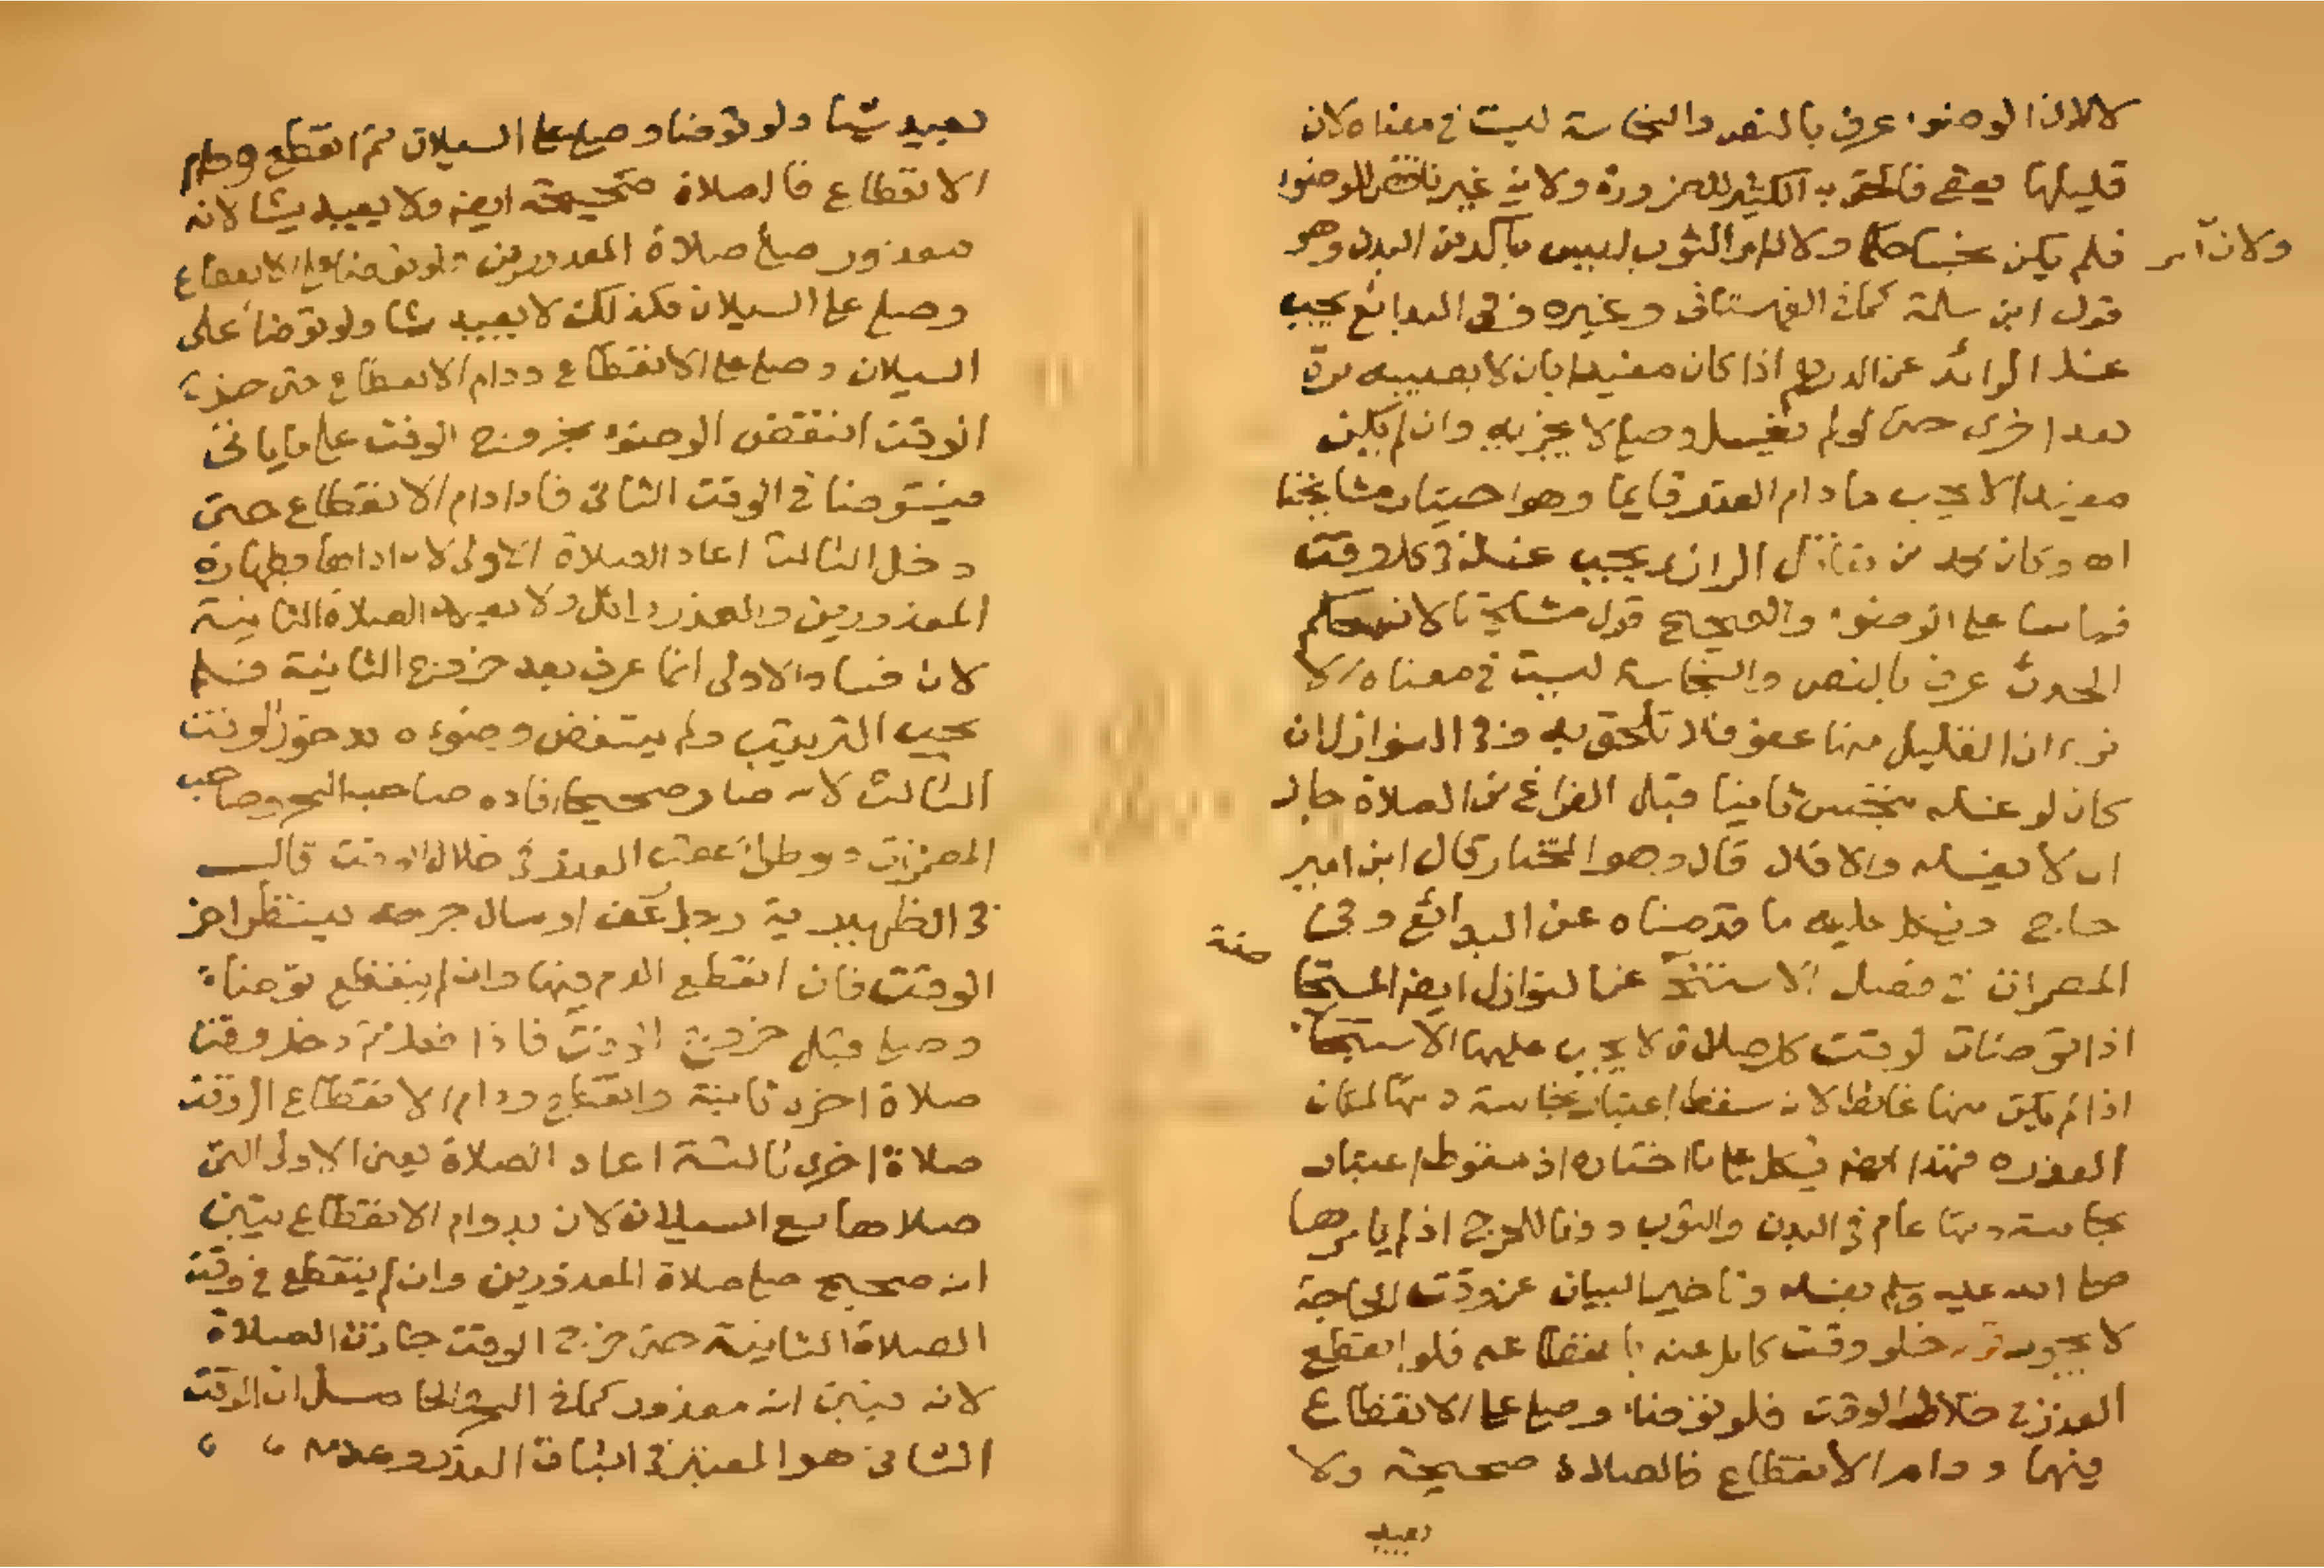 لا لان الوضوء عرف بالنص والنجاسة ليست في معناه لان
قليلها يعفى فالحق به الكثير للضرورة ولانه غير ناقض للوضوء
فلم يكن نجسا حكما ولان امر الثوب ليس باكد من البدن وهو
ولان امر
قول ابن سلمة كما في القهستاني وغيره وفي البدائع يجب
غسل الزائد عن الدرهم اذا كان مفيدا بان لا يصيبه مرة
بعد اخرى حتى لو لم يغسل وصلى لا يجزيه وان لم يكن
مفيدا لا يجب ما دام العذر قايما وهو اختيار مشايخنا
اه وكان محمد بن مقاتل الرازي يجب غسله في كل وقت
قياسا على الوضوء والصحيح قول مشايخنا لان حكم
الحدث عرف بالنص والنجاسة ليست في معناه الا
ترى ان القليل منها عفو فلا تلحق به وفي النوازل ان
كان لو غسله تنجس ثانيا قبل الفراغ من الصلاة جاز
ان لا يغسله والا فلا قال وهو المختار قال ابن امير
حاج ويشكل عليه ما قدمناه عن البدائع وفي
المضمرات في فصل الاستنجاء عن النوازل ايضا المستحاضة
اذا توضات لوقت كل صلاة لا يجب عليها الاستنجاء
اذا لم يكن منها غائط لانه سقط اعتبار نجاسة دمها لمكان
العذر اه فهذا ايضا يشكل على ما اختاره اذ سقوط اعتبار
نجاسة دمها عام في البدن والثوب دفعا للحرج اذ لم يامرها
صلى الله عليه وسلم بغسله وتاخير البيان عن وقت الحاجة
لا يجوز خلو وقت كامل عنه بانقطاعه فلو انقطع
العذر في خلال الوقت فلو توضا وصلى على الانقطاع
فيهما ودام الانقطاع فالصلاة صحيحة ولا
يعيد
يعيد شيا ولو توضا وصلى على السيلان ثم انقطع ودام
الانقطاع فالصلاة صحيحة ايضا ولا يعيد شيا لانه
معذور صلى صلاة المعذورين ولو توضا على الانقطاع
وصلى على السيلان فكذلك لا يعيد شيا ولو توضا على
السيلان وصلى على الانقطاع ودام الانقطاع حتى خرج
الوقت انتقض الوضوء بخروج الوقت على ما ياتي
فيتوضا في الوقت الثاني فاذا دام الانقطاع حتى
دخل الثالث اعاد الصلاة الاولى لانه اداها بطهارة
المعذورين والعذر زائل ولا يعيد الصلاة الثانية
لان فساد الاولى انما عرف بعد خروج الثانية فلم
يجب الترتيب ولم ينتقض وضوءه بدخول الوقت
الثالث لانه صار صحيحا افاده صاحب البحر وصاحب
المضمرات ولو طرا العذر في خلال الوقت قال
في الظهيرية رجل رعف او سال جرحه ينتظر اخر
الوقت فان انقطع الدم فيها وان لم ينقطع توضا
وصلى قبل خروج الوقت فاذا فعل ثم دخل وقت
صلاة اخرى ثانية وانقطع ودام الانقطاع الى وقت
صلاة اخرى ثالثة اعاد الصلاة يعني الاولى التي
صلاها مع السيلان لان بدوام الانقطاع يتبين
انه صحيح صلى صلاة المعذورين وان لم ينقطع في وقت
الصلاة الثانية حتى خرج الوقت جازت الصلاة
لانه يتبين انه معذور كما في البحر والحاصل ان الوقت
الثاني هو المعتبر في اثبات العذر وعدمه